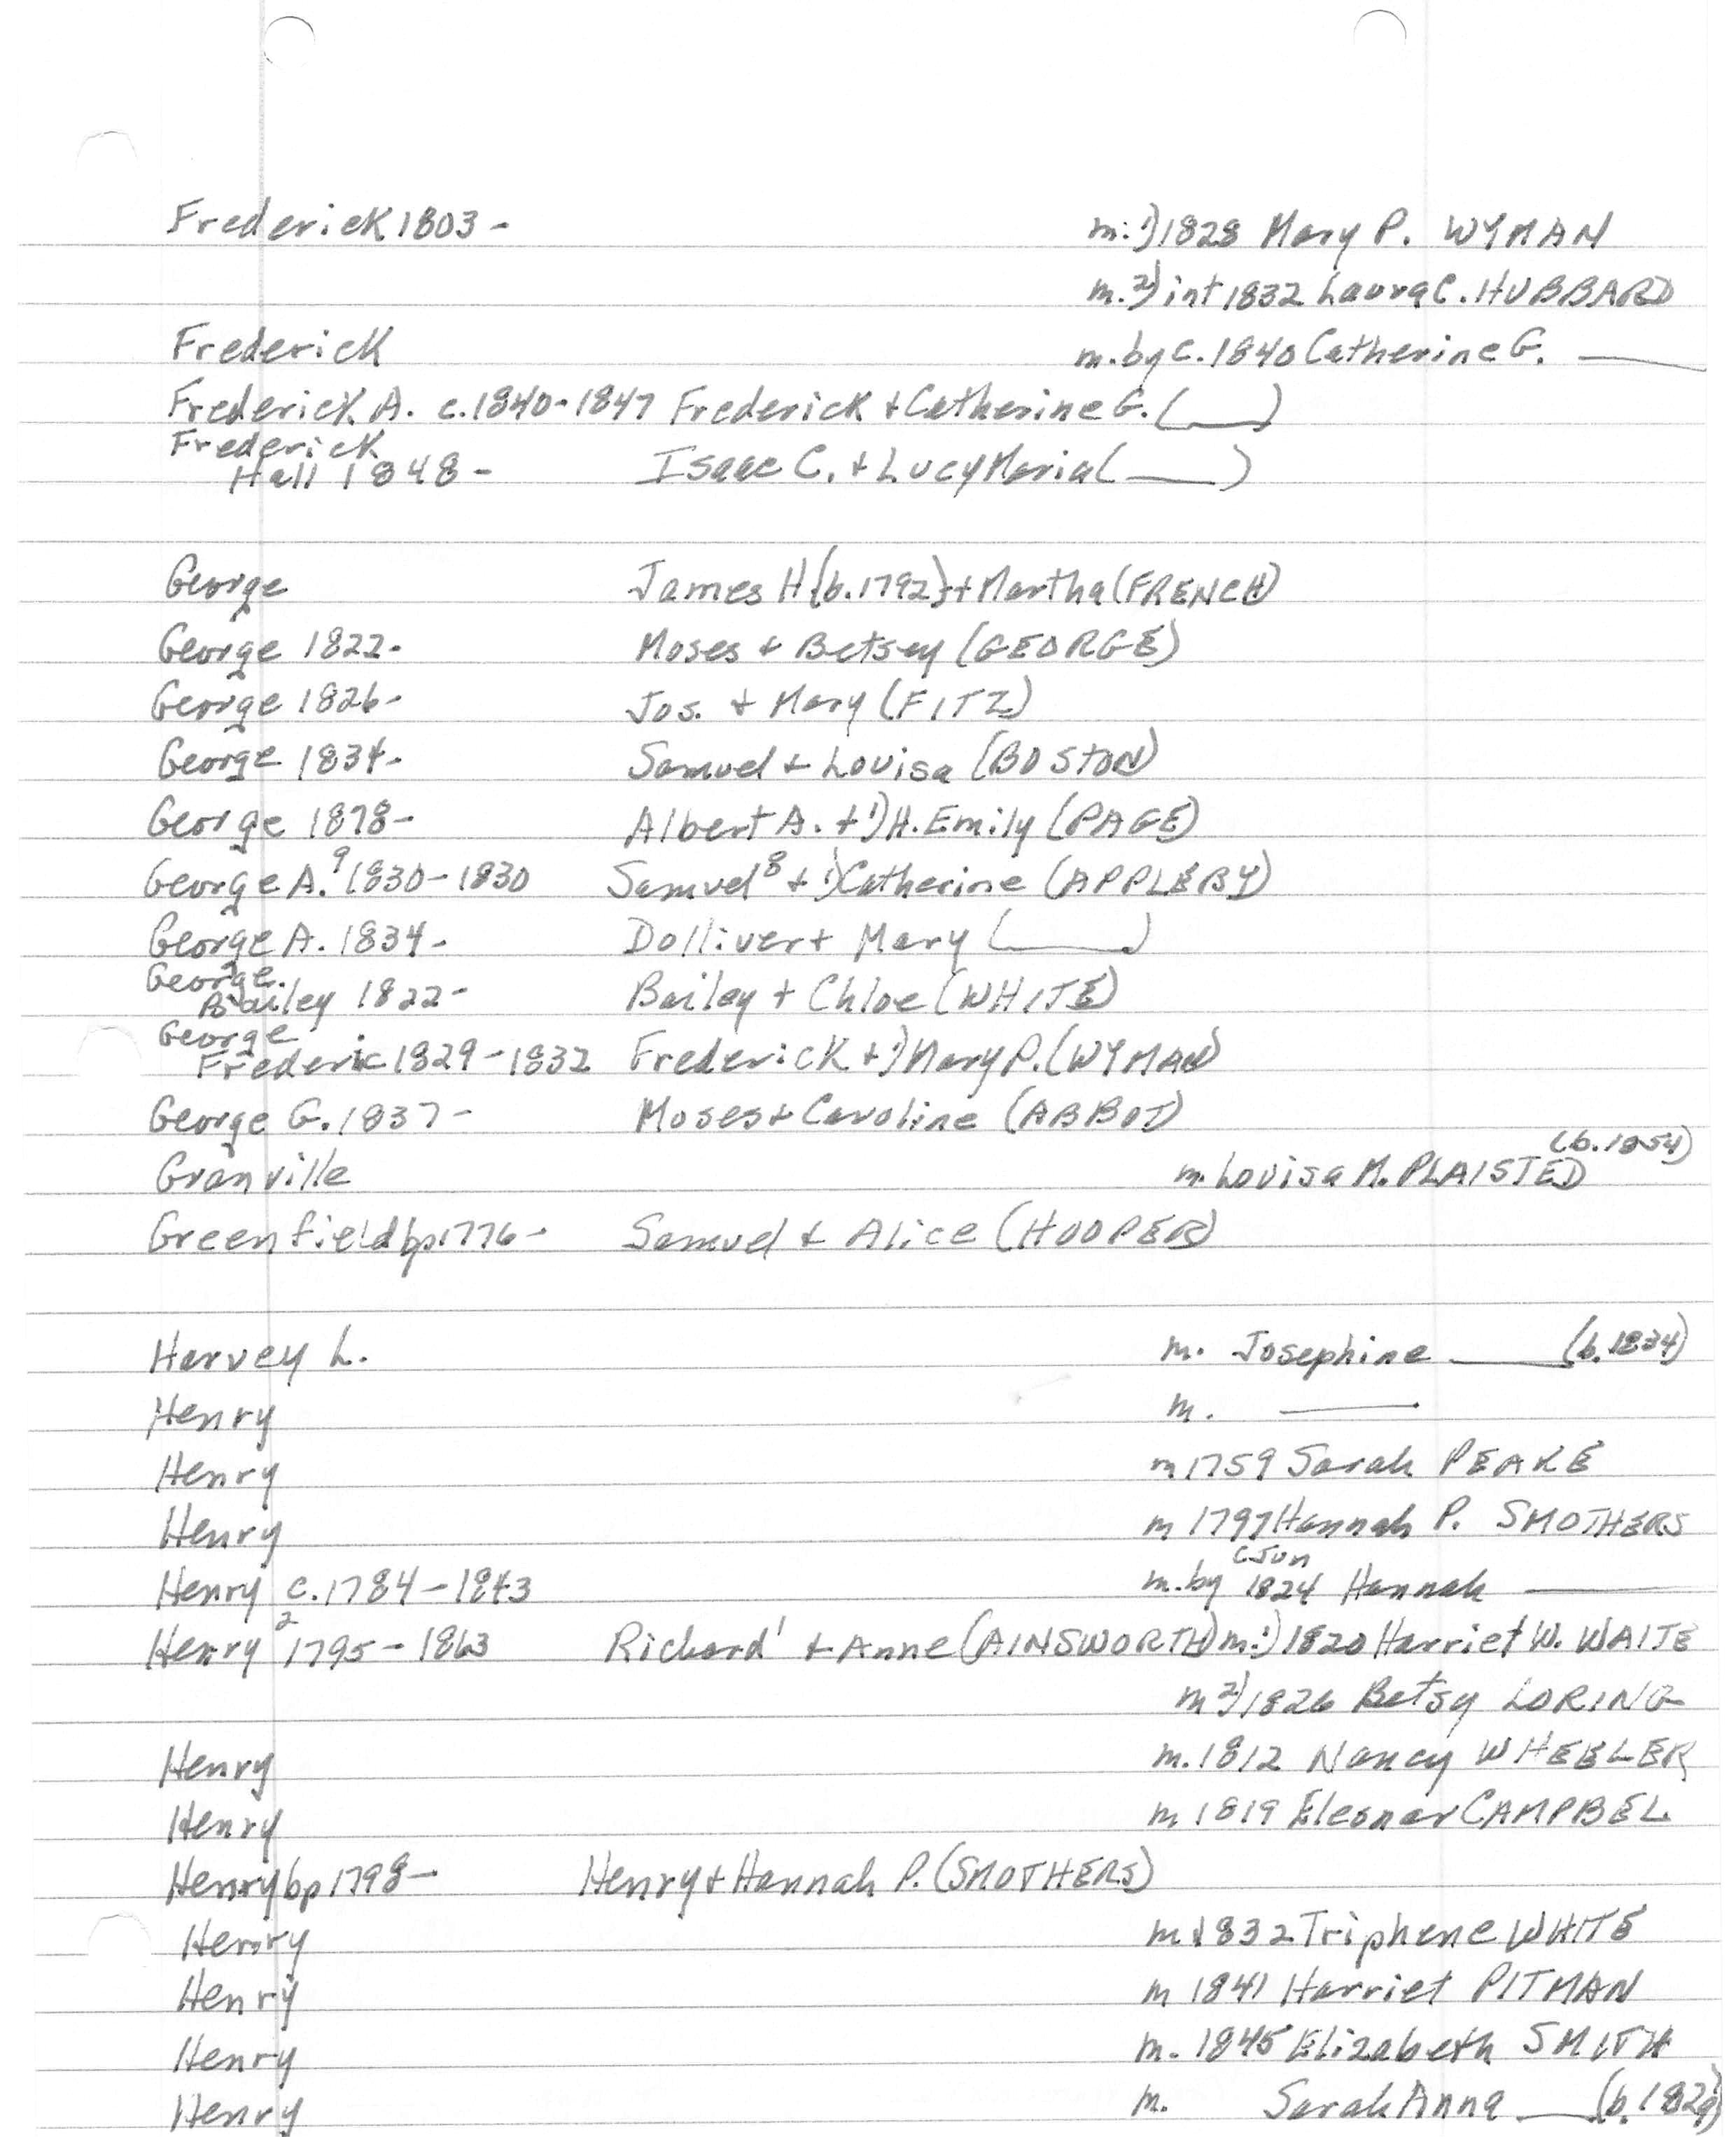 Frederick 1803 - m.1) 1828 Mary P. WYMAN
m.2) int 1832 Laura C. HUBBARD
Frederick m. by c. 1840 Catherine G. ____
Frederick A. c. 1840-1847 Frederick + Catherine G. (____)
Frederick
Hall 1848 - Isaac C. + Lucy Maria (____)
George James H {b. 1792} + Martha (FRENCH)
George 1822 - Moses + Betsey (GEORGE)
George 1826 - Jos. + Mary (FITZ)
George 1834 - Samuel + Louisa (BOSTON)
George 1878 - Albert A. + 1) H. Emily (PAGE)
George A.⁹ 1830-1830 Samuel⁸ + 1) Catherine (APPLEBY)
George A. 1834 - Dolliver + Mary (____)
George
Bailey 1822 - Bailey + Chloe (WHITE)
George
Frederic 1829-1832 Frederick + 1) Mary P. (WYMAN)
George G. 1837 - Moses + Caroline (ABBOT)
Granville m. Louisa M. PLAISTED (b. 1854)
Greenfield bp 1776 - Samuel + Alice (HOOPER)
Harvey L. m. Josephine ____ (b. 1834)
Henry m. ____
Henry m 1759 Sarah PEAKE
Henry m 1797 Hannah P. SMOTHERS
Henry c. 1784-1843 m. by c Jun 1824 Hannah ____
Henry² 1795-1863 Richard¹ + Anne (AINSWORTH) m.1) 1820 Harriet W. WAITE
m 2) 1826 Betsy LORING
Henry m. 1812 Nancy WHEELER
Henry m 1819 Eleonar CAMPBEL
Henry bp 1798 - Henry + Hannah P. (SMOTHERS)
Henry m 1832 Triphene WHITE
Henry m 1841 Harriet PITMAN
Henry m. 1845 Elizabeth SMITH
Henry m. Sarah Anna ____ (b. 1829)